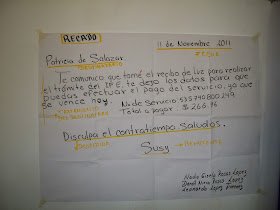 RECADO
11 de Noviembre 2011
FECHA
Patricia de Salazar
DESTINATARIO
Te comunico que tomé el recibo de luz para realizar
el trámite del IFE, te dejo los datos para que
puedas efectuar el pago del servicio, ya que
se vence hoy.
No de Servicio 535940800249
Total a pagar $ 266.96
Disculpa el contratiempo Saludos.
DESPEDIDA
Susy
REMITENTE
Rosas López